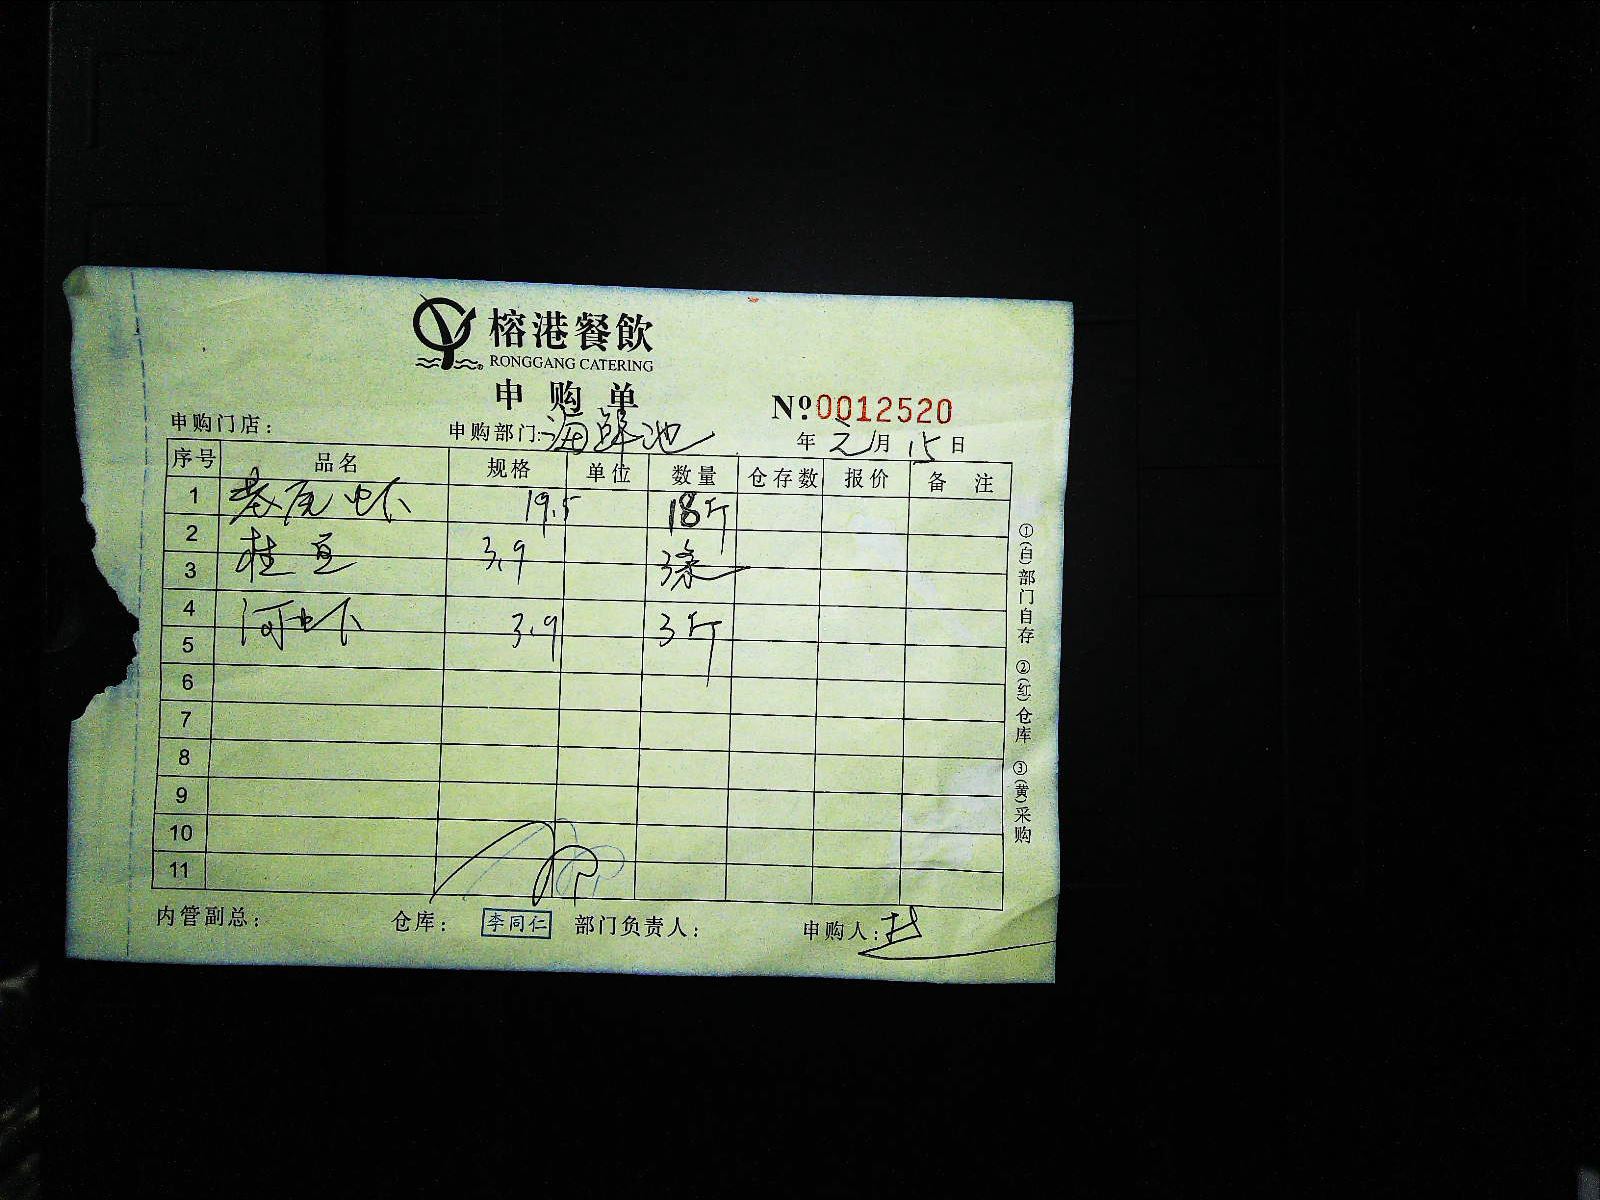 榕港餐飲
RONGGANG CATERING
申购单
№0012520
申购门店： 申购部门：海鲜池 年 元月 15日
序号 品名 规格 单位 数量 仓存数 报价 备注
1 基尾虾 19.5 18斤
2 桂鱼 3.9 3条
3
4 河虾 3.9 3斤
5
6
7
8
9
10
11
内管副总： 仓库： 李同仁 部门负责人： 申购人：
①(白)部门自存 ②(红)仓库 ③(黄)采购